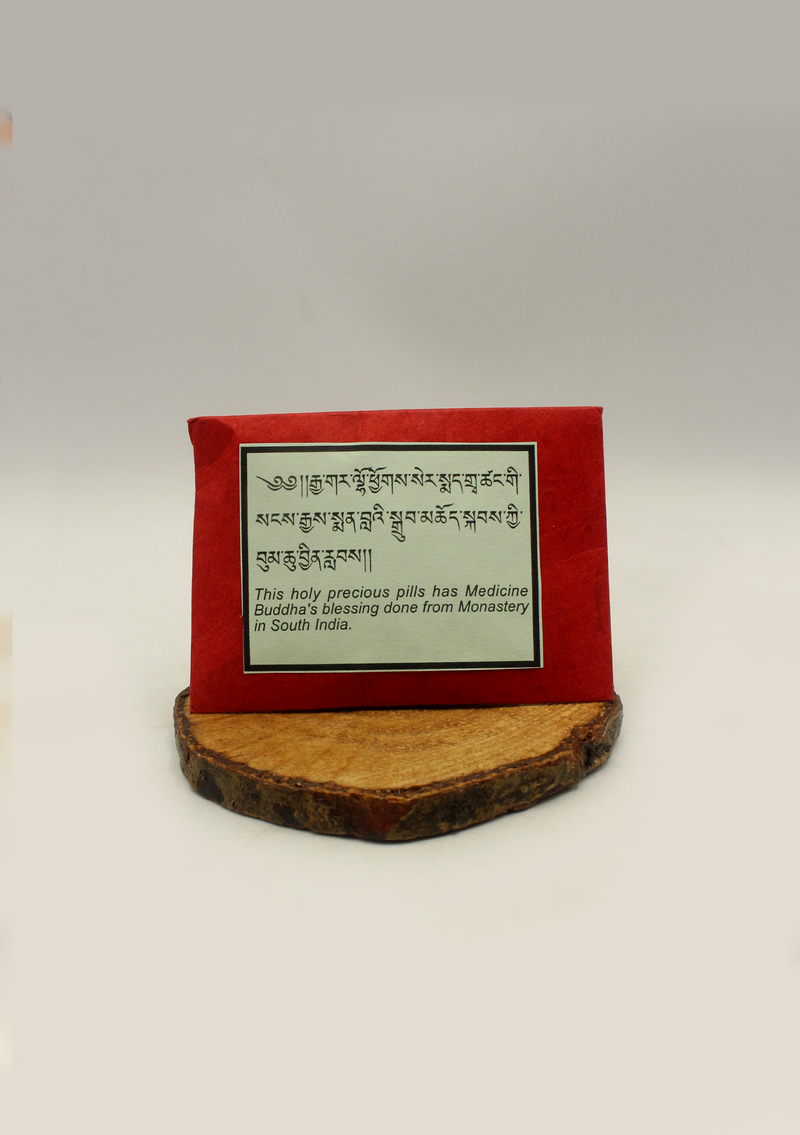 ༄༅།།རྒྱ་གར་ལྷོ་ཕྱོགས་སེར་སྨད་གྲྭ་ཚང་གི་
སངས་རྒྱས་སྨན་བླའི་སྒྲུབ་མཆོད་སྐབས་ཀྱི་
བུམ་ཆུ་བྱིན་རླབས།།
This holy precious pills has Medicine
Buddha's blessing done from Monastery
in South India.